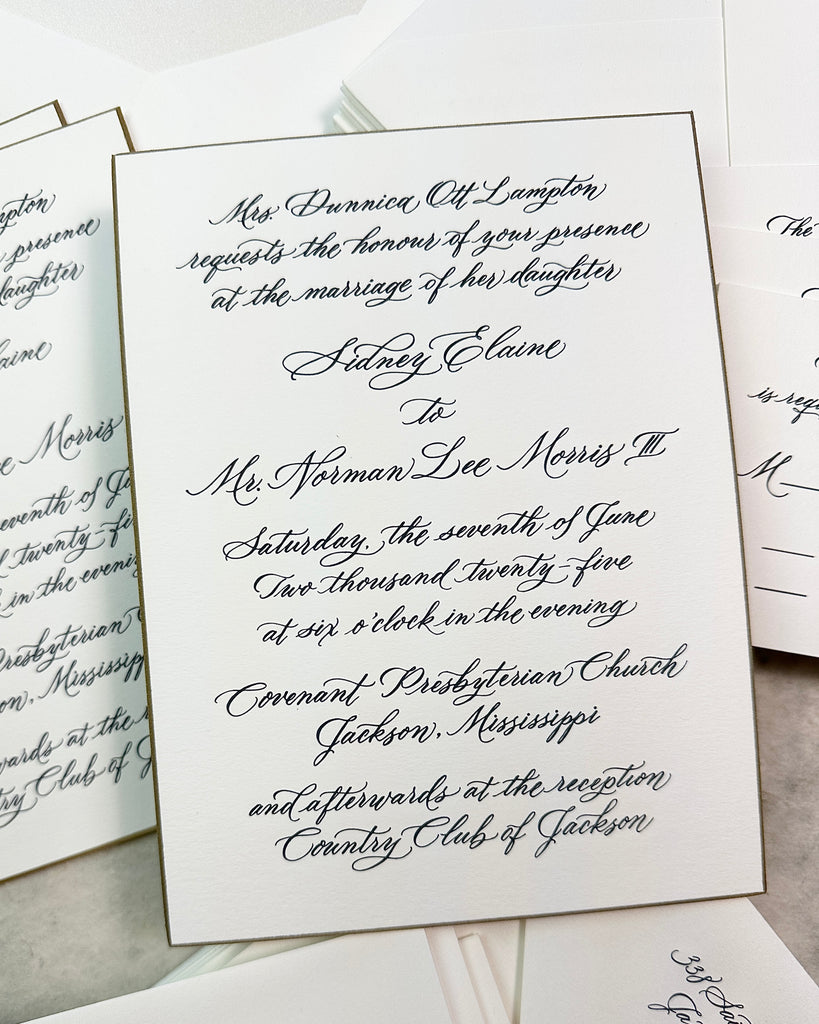 Mrs. Dunnica Ott Lampton
requests the honour of your presence
at the marriage of her daughter
Sidney Elaine
to
Mr. Norman Lee Morris III
Saturday, the seventh of June
Two thousand twenty-five
at six o'clock in the evening
Covenant Presbyterian Church
Jackson, Mississippi
and afterwards at the reception
Country Club of Jackson
presence
Morris
seventh of
in the
Presbyterian
at the
Club of
The
is
M
338